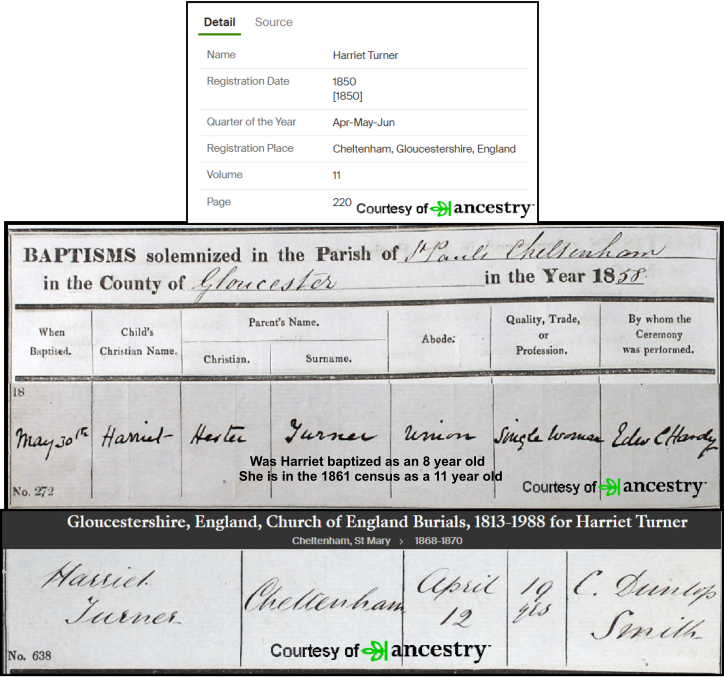 Detail Source
Name Harriet Turner
Registration Date 1850
[1850]
Quarter of the Year Apr-May-Jun
Registration Place Cheltenham, Gloucestershire, England
Volume 11
Page 220
Courtesy of ancestry
BAPTISMS solemnized in the Parish of St Pauls Cheltenham
in the County of Gloucester in the Year 1858
When Baptised. Child's Christian Name. Parent's Name. Abode. Quality, Trade, or Profession. By whom the Ceremony was performed.
Christian. Surname.
18
May 30th Harriet Hester Turner Union Single Woman Edw C Hardy
Was Harriet baptized as an 8 year old
She is in the 1861 census as a 11 year old
No. 272
Courtesy of ancestry
Gloucestershire, England, Church of England Burials, 1813-1988 for Harriet Turner
Cheltenham, St Mary > 1868-1870
Harriet Turner Cheltenham April 12 19 yrs C. Dunlop Smith
No. 638
Courtesy of ancestry